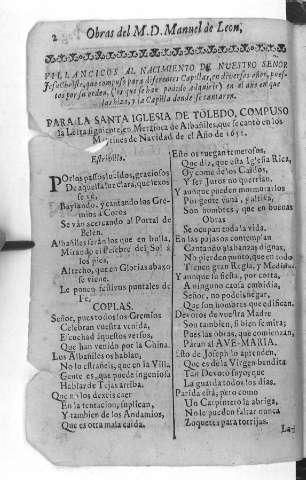 2 Obras del M. D. Manuel de Leon,
VILLANCICOS AL NACIMIENTO DE NUESTRO SEÑOR
Jesu Christo, que compuso para diferentes Capillas, en diversos años, pues-
tos por su orden, (los que se han podido adquirir) en el año en que
las hizo, y la Capilla donde se cantaron.
PARA LA SANTA IGLESIA DE TOLEDO, COMPUSO
la Letra siguiente, en Metafora de Albañiles, que se cantò en los
Maytines de Navidad de el Año de 1651.
Estrivillo.
POr los passos lucidos, graciosos
De aquella luz clara, que
se vè,
Baylando, y cantando los Gremios
à Coros
Se vàn acercando al Portal de
Belen.
Albañiles seràn los que en bulla,
Mirando el Pesebre del Sol a
los pies,
Al techo, que en Glorias abaxo
se viene,
Le ponen festivos puntales de
Fè.
COPLAS.
Señor, pues todos los Gremios
Celebran vuestra venida,
Escuchad aquestos versos,
Que han venido por la China.
Los Albañiles os hablan,
No lo estrañeis, que en la Villa,
Gente es, que puede ingeniosa
Hablar de Tejas arriba.
Que no los dexeis caer
En la tentacion, suplican,
Y tambien de los Andamios,
Que es otra mala caida.
Esto os ruegan temerosos,
Que diz, que esta Iglesia Rica,
Oy come de los Caidos,
Y ser Juros no querrian.
Y aunque pueden murmurarlos
Por gente vana, y altiva,
Son hombres, que en buenas
Obras
Se ocupan toda la vida.
En las pajas os contemplan
Cantando alabanças dignas,
No pierden punto, que en todo
Tienen gran Regla, y Medida.
Y aunque su fiesta, por corta,
A ninguno causa embidia,
Señor, no podeis negar,
Que son hombres que edifican.
Devotos de vuestra Madre
Son tambien, si bien se mira;
Pues las obras, que comienzan,
Pàran al AVE-MARIA.
Esto de Joseph lo aprenden,
Que es de la Virgen bendita
Tan Devoto suyo, que
La guarda todos los dias.
Parida està, pero como
Un Carpintero la abriga,
No le pueden faltar nunca
Zoquetes para torrijas.
La